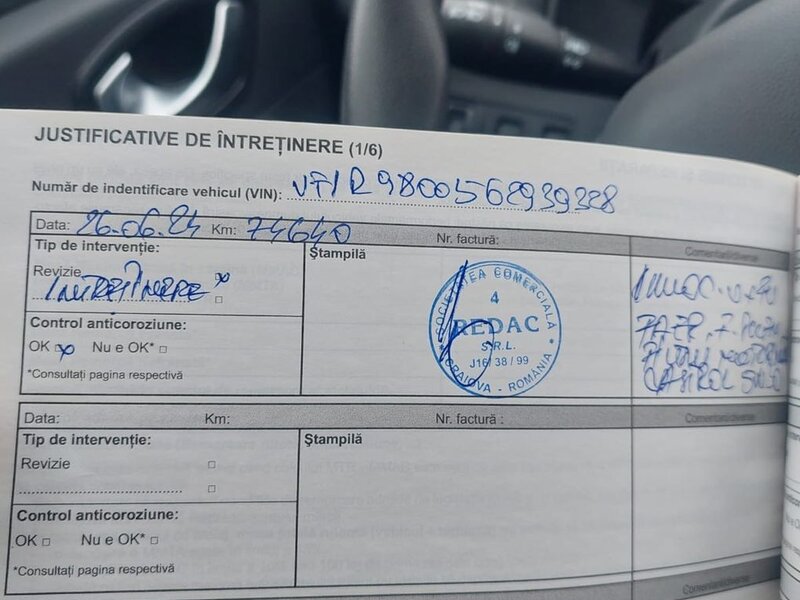 JUSTIFICATIVE DE ÎNTREȚINERE (1/6)
Număr de indentificare vehicul (VIN): VF1R9800562939328
Data: 26.06.24 Km: 74640 Nr. factură: Comentarii/diverse
Tip de intervenție:
Ștampilă
Revizie
ÎNTREȚINERE
Control anticoroziune:
OK Nu e OK*
*Consultați pagina respectivă
SOCIETATEA COMERCIALĂ
4
REDAC
S.R.L.
J16/38/99
CRAIOVA - ROMÂNIA
CASTROL 5W30
Data: Km: Nr. factură : Comentarii/diverse
Tip de intervenție:
Ștampilă
Revizie
Control anticoroziune:
OK Nu e OK*
*Consultați pagina respectivă
Comentarii/diverse